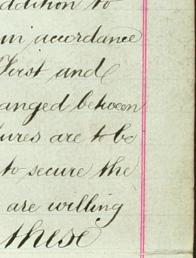 ddition to
in accordance
First and
anged between
ures are to be
to secure the
are willing
these